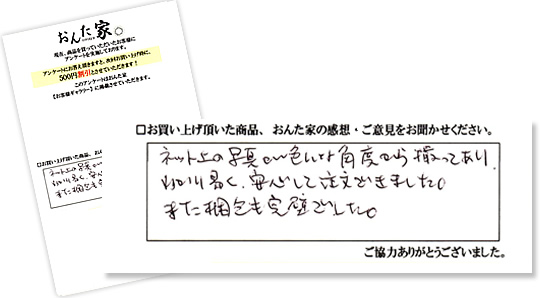 おんた家
現在、商品を買っていただいたお客様に
アンケートを実施しております。
アンケートにお答え頂きますと、次回お買い上げ時に、
500円割引とさせていただきます!
このアンケートはおんた家
【お客様ギャラリー】に掲載させていただきます。
□お買い上げ頂いた商品、おんた家の感想・ご意見をお聞かせください。
ネット上の写真が色んな角度から撮ってあり
わかり易く、安心して注文できました。
また梱包も完璧でした。
ご協力ありがとうございました。